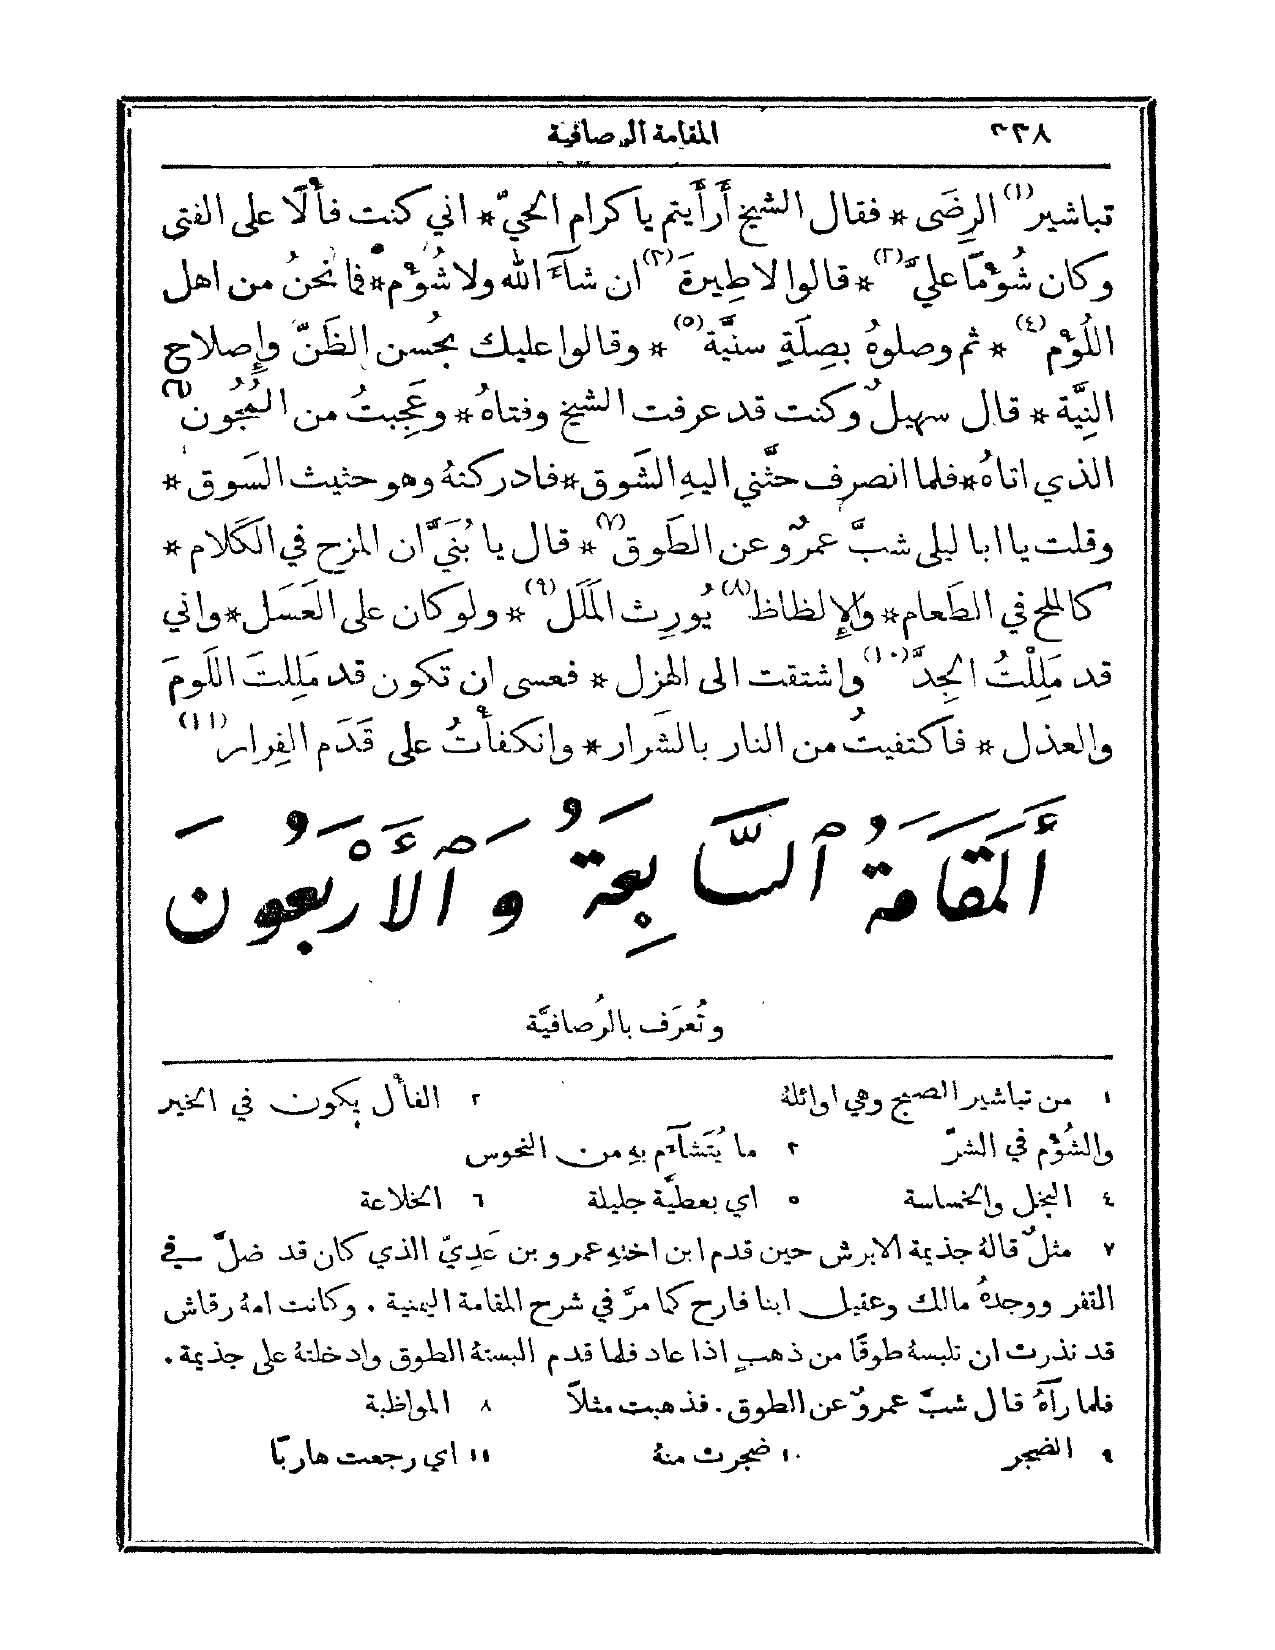 ٣٣٨ المقامة الرصافية
تباشير(١) الرِضَى * فقال الشيخ أَرأَيتم يا كرام الحيّ * اني كنت فأْلًا على الفتى
وكان شُؤْمًا عليَّ(٢) * قالوا لا طِيَرةَ(٣) ان شآءَ الله ولا شُؤْم * فما نحنُ من اهل
اللُؤْم(٤) * ثم وصلوهُ بصِلَةٍ سنيَّة(٥) * وقالوا عليك بحُسن الظَنّ وإِصلاح
النِيَّة * قال سهيلٌ وكنت قد عرفت الشيخ وفتاهُ * وعَجِبتُ من المُجُون(٦)
الذي اتاهُ * فلما انصرف حثَّني اليهِ الشَوق * فادركتهُ وهو حثيث السَوق *
وقلت يا ابا ليلى شبَّ عمرٌو عن الطَوق(٧) * قال يا بُنَيَّ ان المزح في الكَلام *
كالملح في الطَعام * والإِلظاظ(٨) يُورِث المَلَل(٩) * ولو كان على العَسَل * واني
قد مَلِلْتُ الجِدَّ(١٠) واشتقت الى الهزل * فعسى ان تكون قد مَلِلتَ اللَومَ
والعذل * فاكتفيتُ من النار بالشَرار * وانكفأْتُ على قَدَم الفِرار(١١)
أَلمَقَامَةُ ٱلسَّابِعَةُ وَٱلأَرْبَعُونَ
وتُعرَف بالرُصافيَّة
١ من تباشير الصبح وهي اوائلهُ ٢ الفأْل يكون في الخير
والشُؤْم في الشرّ ٣ ما يُتَشآءَم بهِ من النحوس
٤ البخل والخساسة ٥ اي بعطيَّة جليلة ٦ الخلاعة
٧ مثلٌ قالهُ جذيمة الابرش حين قدم ابن اختهِ عمرو بن عَدِيّ الذي كان قد ضلَّ في
القفر ووجدهُ مالك وعقيل ابنا فارح كما مرَّ في شرح المقامة اليمنية . وكانت امهُ رقاش
قد نذرت ان تلبسهُ طوقًا من ذهبٍ اذا عاد فلما قدم البستهُ الطوق وادخلتهُ على جذيمة .
فلما رآهُ قال شبَّ عمرٌو عن الطوق . فذهبت مثلًا ٨ المواظبة
٩ الضجر ١٠ ضجرت منهُ ١١ اي رجعت هاربًا